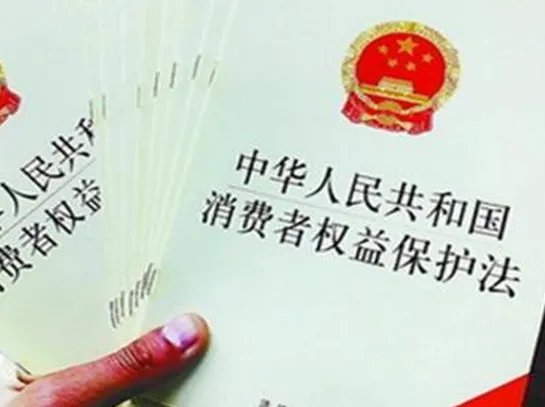 中华人民共和国
消费者权益保护法
人民共和
消费者权益